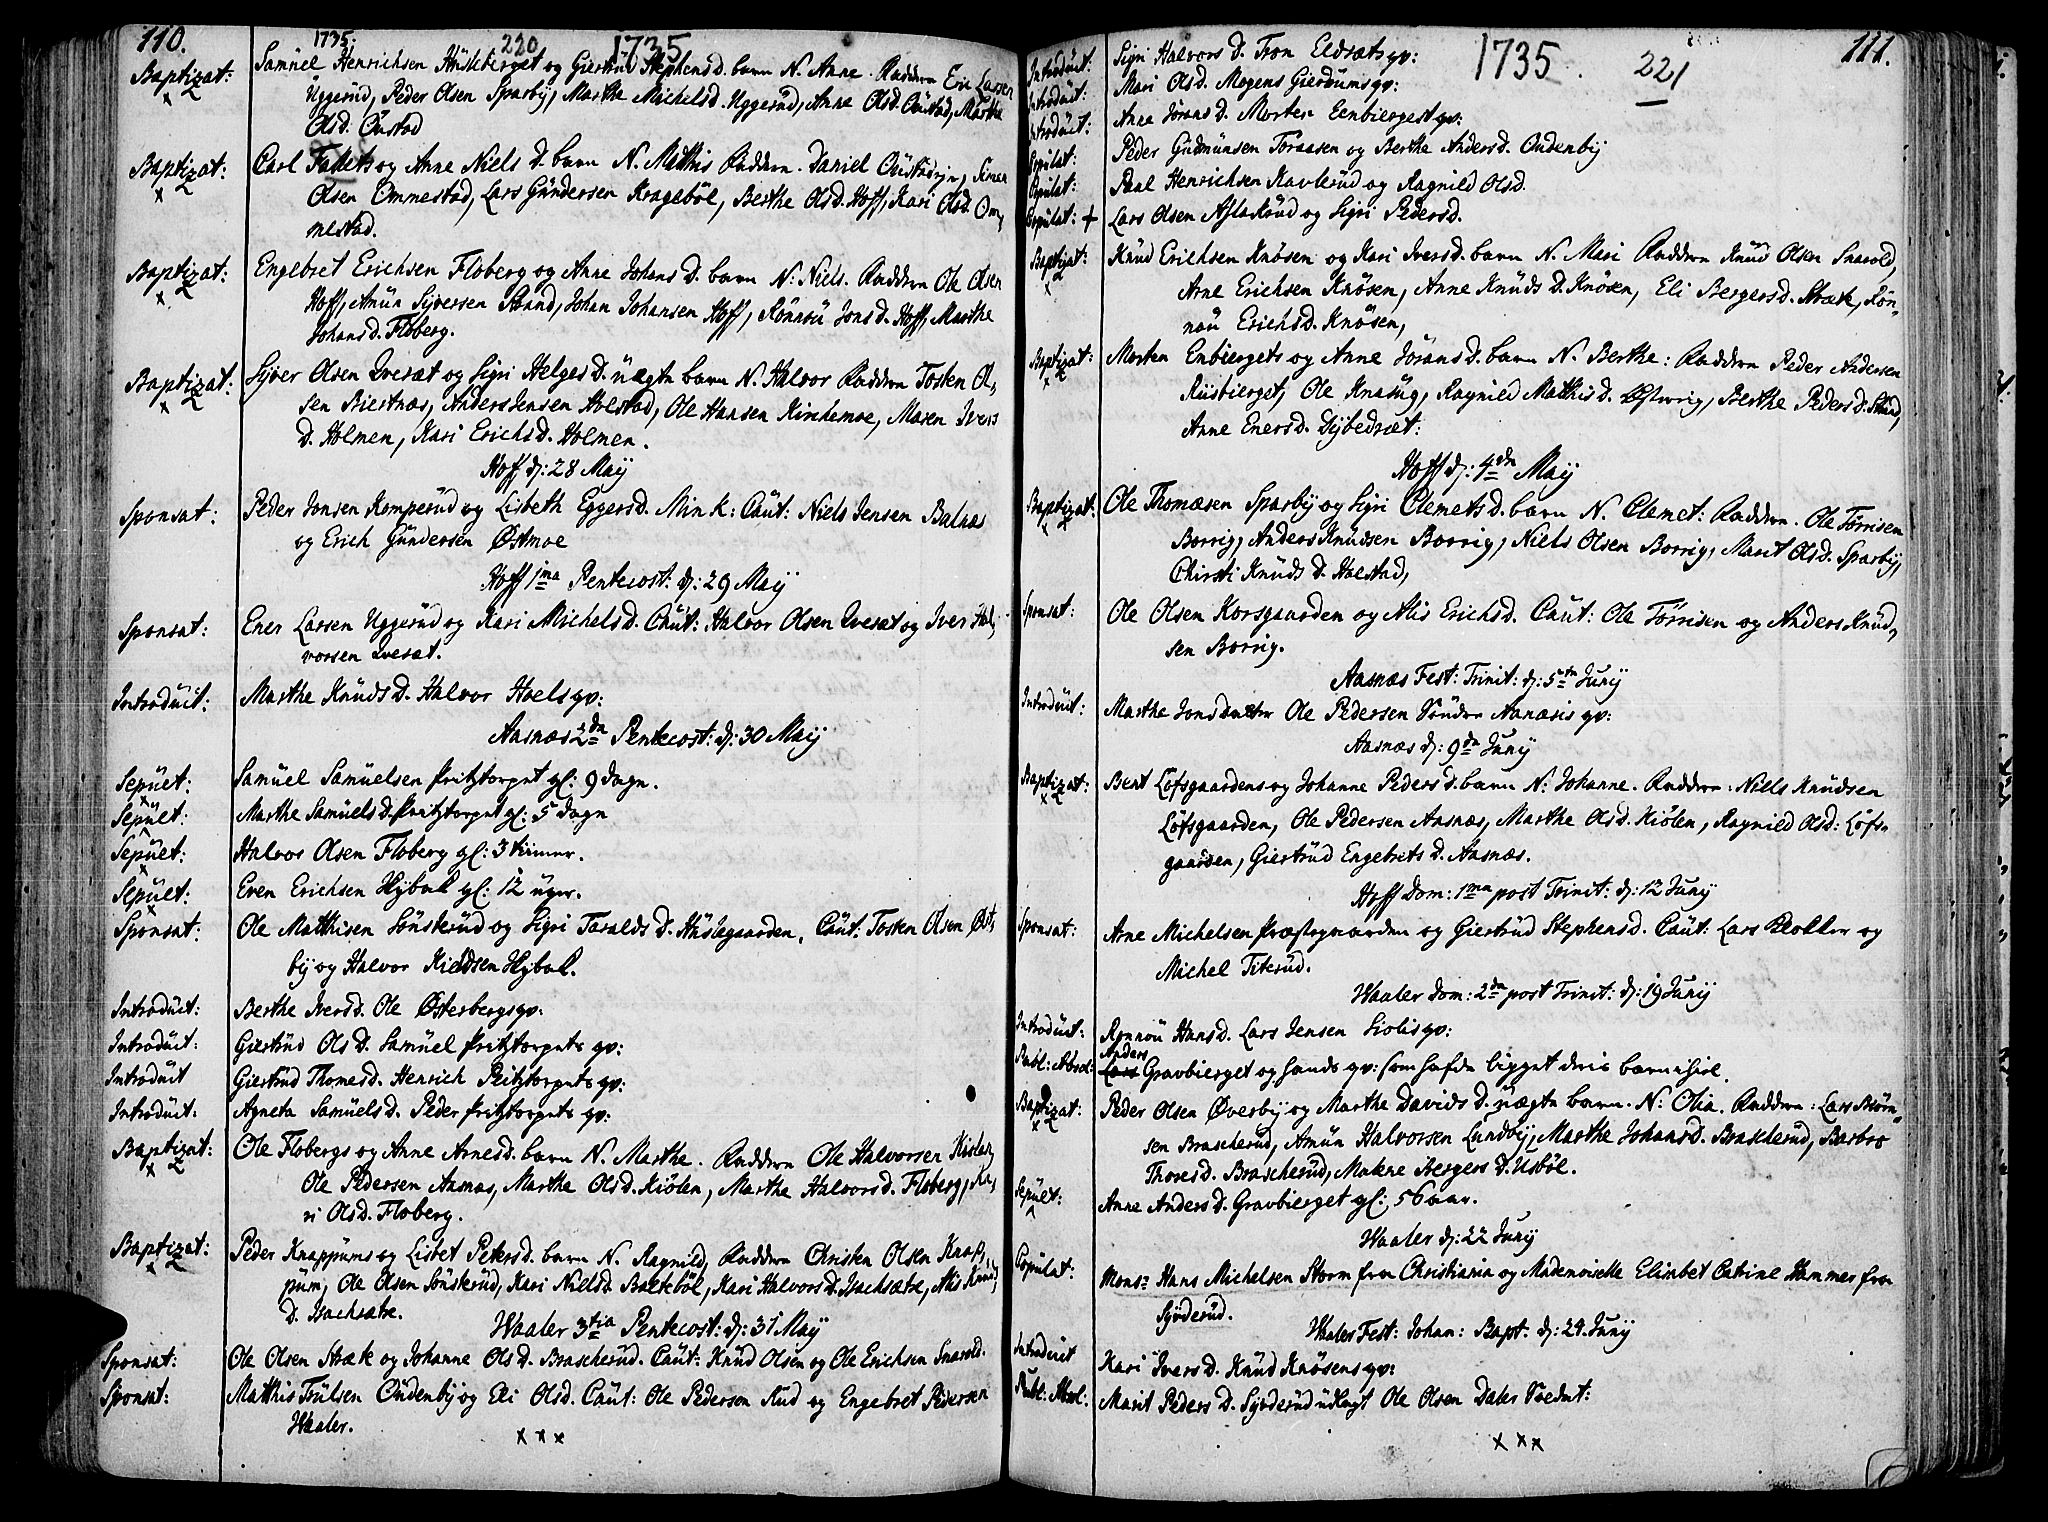 110.
1735.
220
1735
Baptizat: Samuel Henrichsen Huskeberget og Giertrud Stephensd. barn N. Anne. Fadderne Eric Larsen
Uggerud, Peder Olsen Sparby, Marthe Michelsd. Uggerud, Anne Olsd. Oustad, Marthe
Olsd. Oustad
Baptizat: Carl og Anne Niels D. barn N. Matthis Fadderne. Daniel Simen
Olsen Ommestad, Lars Gundersen Kragebøl, Berthe Olsd. Hoff, Kari Olsd. Om,
mestad.
Baptizat: Engebret Erichsen Floberg og Anne Johans D. barn N. Niels. Fadderne Ole Olsen
Hoff, Amun Syversen Strand, Johan Johansen Hoff, Rønnou Jons d. Hoff, Marthe
Johans D. Floberg.
Baptizat: Syver Olsen Qvesæt og Sigri Helges D. uægte barn N. Halvor Fadderne Tosten Ol,
sen Biertnæs, Anders Jensen Holstad, Ole Hansen Kirchemoe, Maren Ivers
D. Holmen, Kari Erichs D. Holmen.
Hoff d: 28 Maij
Sponsat: Peder Jonsen Komperud og Lisbeth Eggersd. Min.K: Caut: Niels Jensen Balnæs
og Erich Gundersen Østmoe
Hoff 1ma Pentecost: d: 29 Maij
Sponsat: Ener Larsen Uggerud og Kari Michels D. Caut: Halvor Olsen Qvesæt og Iver Hal,
vorsen Qvesæt.
Introduit: Marthe Knuds D. Halvor Hoels qv:
Aasnæs 2da Pentecost: d: 30 Maij
Sepult: Samuel Samuelsen Pritztorpet gl: 9 Dage.
Sepult: Marthe Samuels D. Pritztorpet gl: 5 Dage
Sepult: Halvor Olsen Floberg gl: 3 timer.
Sepult: Even Erichsen Hybal gl: 12 uger.
Sponsat: Ole Matthisen Sønskerud og Sigri Taralds D. Huslegaarden. Caut. Tosten Olsen Øst,
by og Halvor Kieldsen Hybal.
Introduit: Berthe Iversd. Ole Østerbergs qv:
Introduit: Giertrud Ols D. Samuel Pritztorpets qv:
Introduit Giertrud Thomesd. Henrich Pritztorpets qv:
Introduit: Agneta Samuels D. Peder Pritztorpets qv:
Baptizat: Ole Flobergs og Anne Arnesd. barn N. Marthe. Fadderne Ole Halvorsen
Ole Pedersen Aasnæs, Marthe Olsd. Kiølen, Marthe Halvors D. Floberg, Ka,
ri Olsd. Floberg.
Baptizat: Peder Knappums og Lisbet Petersd. barn N. Ragnild, Fadderne Christen Olsen Knap,
pum, Ole Olsen Sønskerud, Kari Nielsd. Baltebøl, Kari Halvors D. Isachsætre, Alis Knud,
D. Isachsætre.
Waaler 3tia Pentecost: d: 31 Maij
Sponsat: Ole Olsen Stræte og Johanne Ols D. Brascherud. Caut: Knud Olsen og Ole Erichsen Snarold.
Sponsat: Matthis Trulsen Oudenby og Eli Olsd. Caut: Ole Pedersen Rud og Engebret Pedersen
Waaler.
x x x
1735.
221
111.
Introduit: Sigri Halvors D. Tron Eldsæts qv:
Introduit: Mari Olsd. Mogens Gierdrums qv:
Introduit: Anne Jørans D. Morten Eenbierget qv:
Copulat: Peder Gudmunsen Toraasen og Berthe Andersd. Oudenby
Copulat: Paal Henrichsen Kavlerud og Ragnild Olsd.
Copulat: + Lars Olsen Aslakrud og Sigri Pedersd.
Baptizat: Knud Erichsen Knøsen og Kari Iversd. barn N. Mari Fadderne Knud Olsen Snarold,
Arne Erichsen Knøsen, Anne Knuds D. Knøsen, Eli Bergersd. Stræte, Røn,
nou Erichsd. Knøsen,
Baptizat: Morten Enbiergets og Anne Jørans D. barn N. Berthe: Fadderne Peder Andersen
Riisbierget, Ole Knatug, Ragnild Matthis d. Østvrig, Berthe Peders D. Strand,
Anne Eners D. Sybedræt:
Hoff d: 4de Maij
Baptizat: Ole Thomæsen Sparby og Sigri Clemets D. barn N. Clemet: Fadderne. Ole Tørrisen
Borrig, Anders Knudsen Borrig, Niels Olsen Borrig, Marit Olsd. Sparby,
Chirsti Knuds D. Holstad,
Sponsat: Ole Olsen Korsgaarden og Alis Erichs D. Caut: Ole Tørrisen og Anders Knud,
sen Borrig.
Aasnæs Fest: Trinit: d: 5te Junij
Introduit: Marthe Jonsdatter Ole Pedersen Søndre Aanæsis qv:
Aasnæs d: 9de Junij
Baptizat: Bent Løfsgaardens og Johanne Peders D. barn N: Johanne. Fadderne: Niels Knudsen
Løfsgaarden, Ole Pedersen Aasnæs, Marthe Olsd. Kiølen, Ragnild Olsd: Løfs,
gaarden, Giertrud Engebrets D. Aasnæs.
Hoff Dom: 1ma post Trinit: d: 12 Junij
Sponsat: Arne Michelsen Præstegaarden og Giertrud Stephensd. Caut: Lars Klokker og
Michel Titerud.
Waaler Dom: 2da post Trinit: d: 19 Junij
Introduit: Rønnou Hansd. Lars Jensen Liolis qv:
Publ: Absol: Anders
Lars Gravbierget og hands qv: som hafde ligget deris barn ihiel.
Baptizat: Peder Olsen Øverby og Marthe Davids D. uægte barn. N: Olia. Fadderne: Lars Biørn,
sen Brascherud, Amun Halvorsen Lundby, Marthe Johansd. Brascherud, Barbro
Thoresd. Brascherud, Malene Bergers D. Usbøl.
Sepult: Anne Anders D. Gravbierget gl: 56 aar.
Waaler d: 22 Junij
Copulat: Mons: Hans Michelsen Storm fra Christiania og Mademoiselle Elisabet Catrine Hammer fra
Sÿnderud.
Waaler Fest: Johan: Bapt: d: 24. Junij
Introduit Kari Ivers D. Knud Knøsens qv:
Publ: Absol. Marit Peders D. Synderud udlagt Ole Olsen Daler Svednt:
x x x